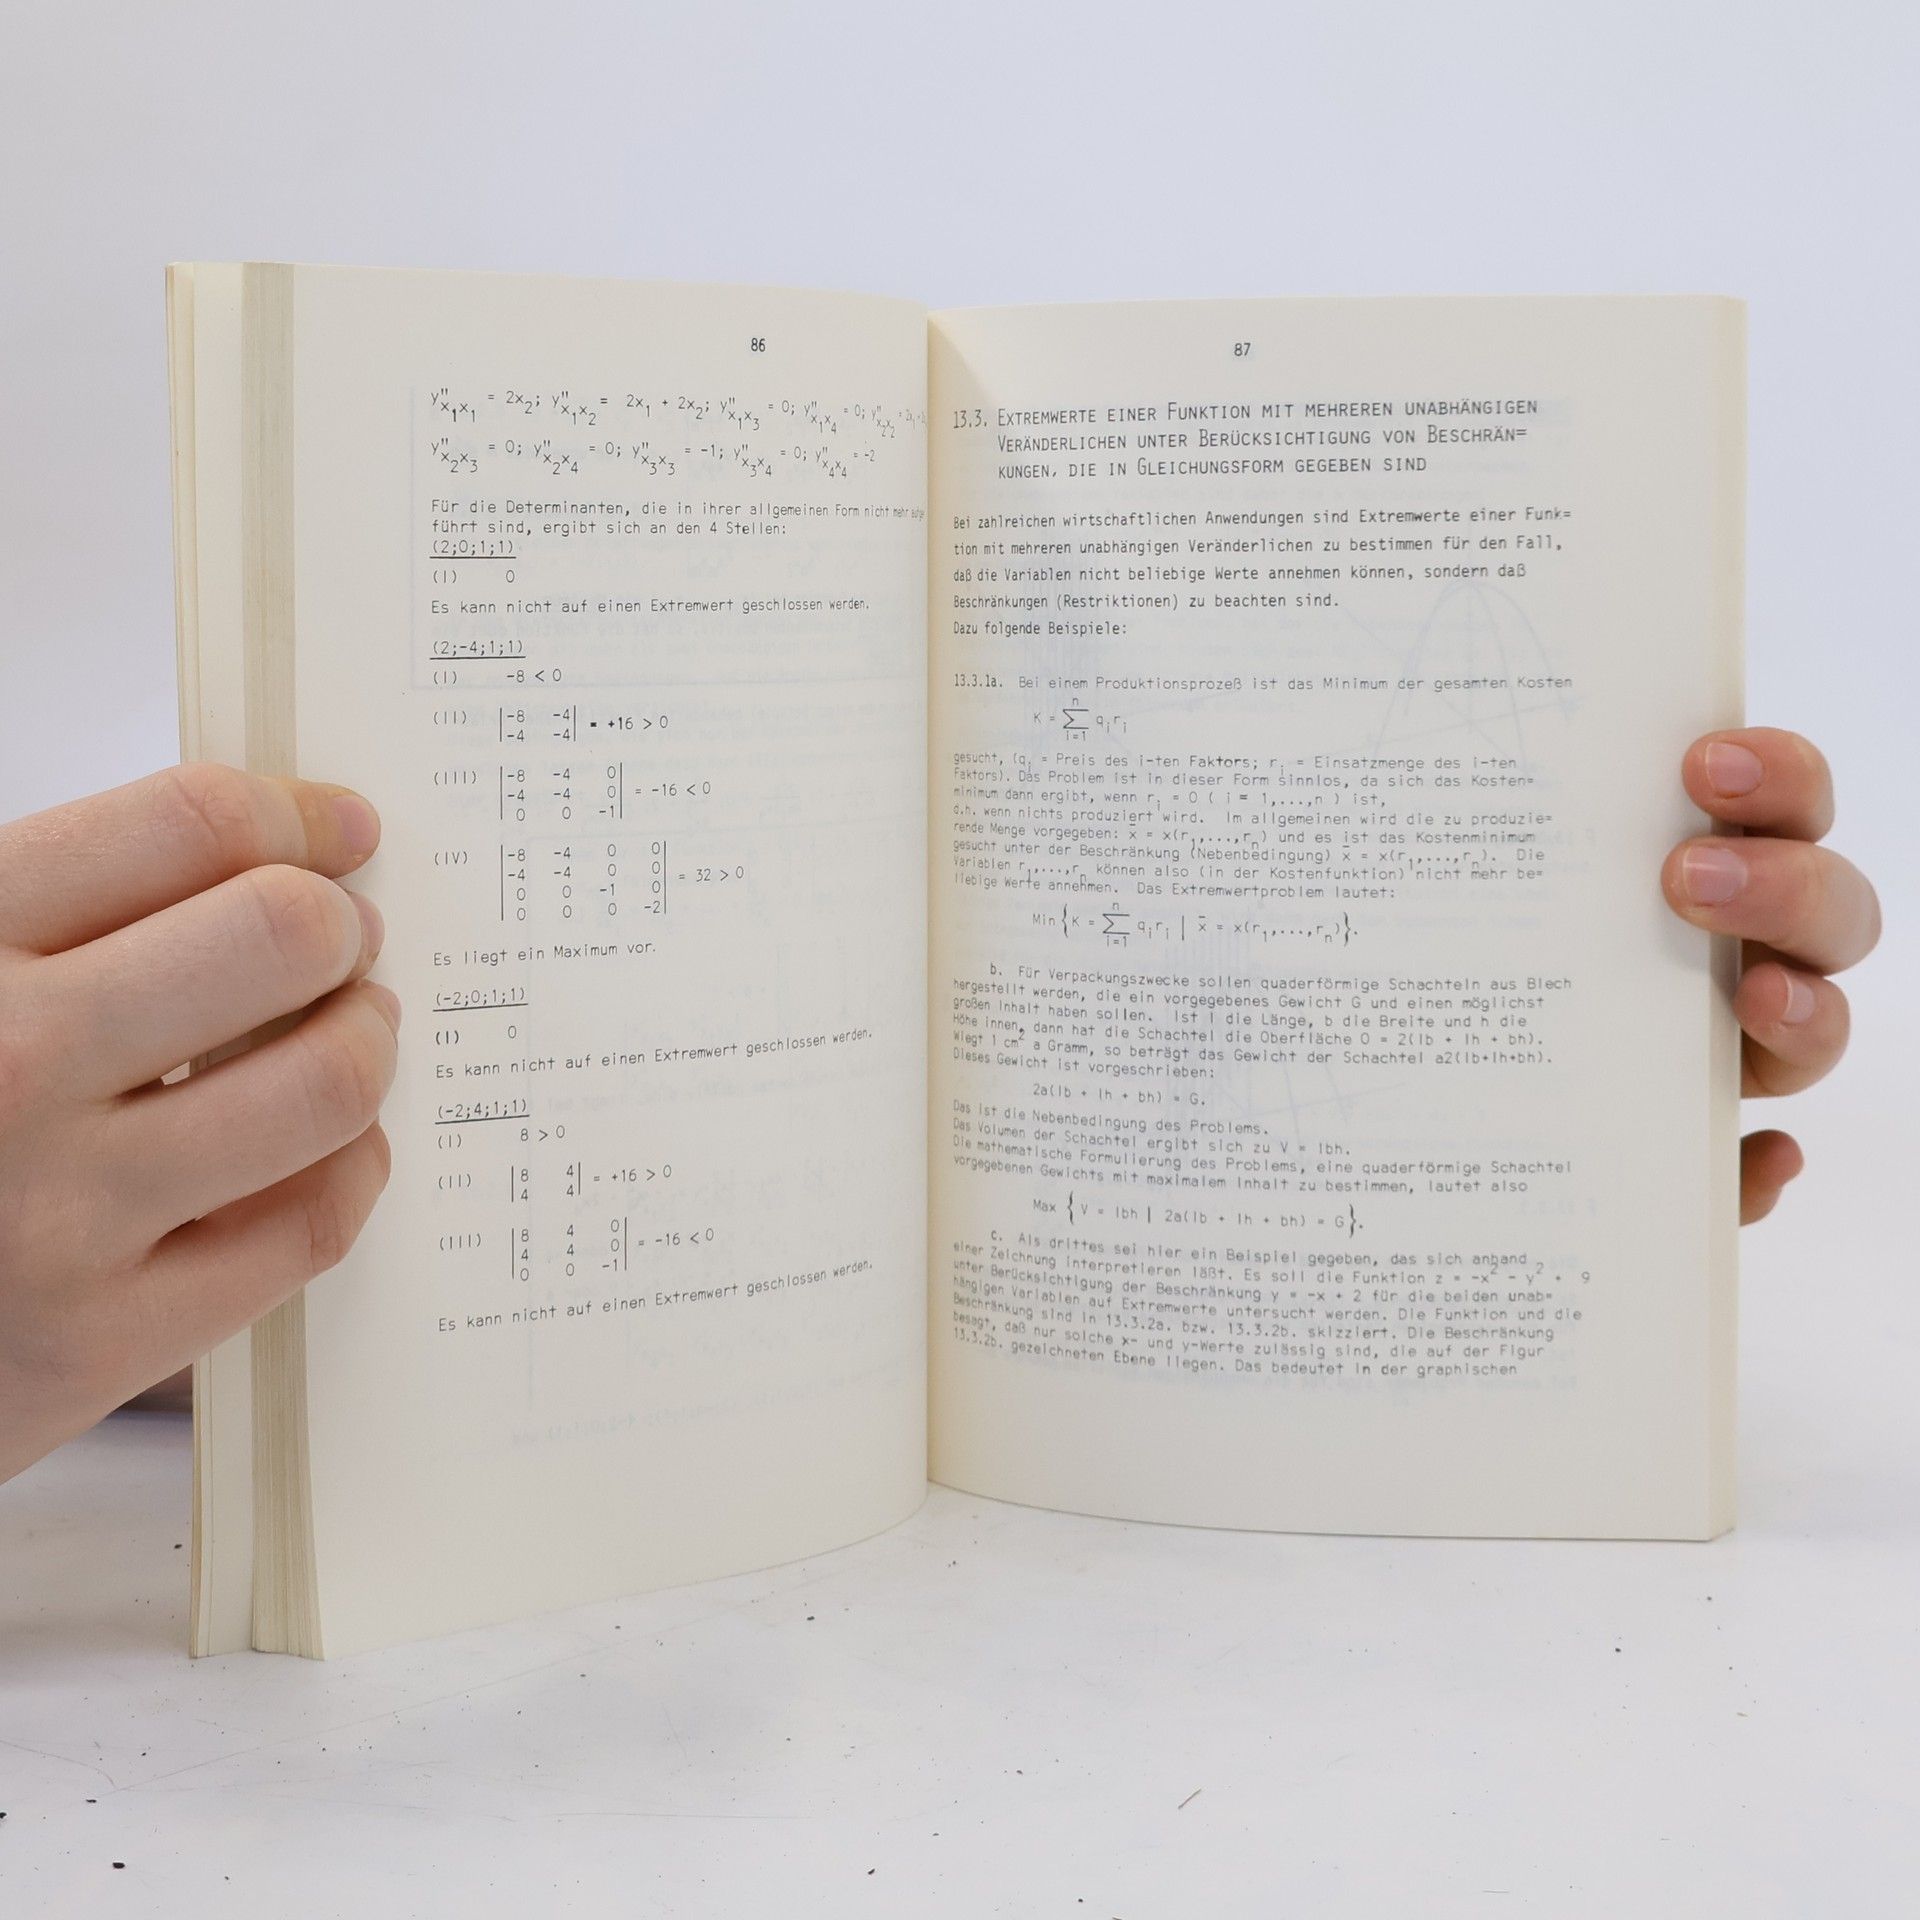 86
y''x₁x₁ = 2x₂; y''x₁x₂ = 2x₁ + 2x₂; y''x₁x₃ = 0; y''x₁x₄ = 0; y''x₂x₂ = 2x₁
y''x₂x₃ = 0; y''x₂x₄ = 0; y''x₃x₃ = -1; y''x₃x₄ = 0; y''x₄x₄ = -2
Für die Determinanten, die in ihrer allgemeinen Form nicht mehr
führt sind, ergibt sich an den 4 Stellen:
(2;0;1;1)
(I) 0
Es kann nicht auf einen Extremwert geschlossen werden.
(2;-4;1;1)
(I) -8 < 0
(II) |-8 -4| = +16 > 0
|-4 -4|
(III) |-8 -4 0|
|-4 -4 0| = -16 < 0
|0 0 -1|
(IV) |-8 -4 0 0|
|-4 -4 0 0| = 32 > 0
|0 0 -1 0|
|0 0 0 -2|
Es liegt ein Maximum vor.
(-2;0;1;1)
(I) 0
Es kann nicht auf einen Extremwert geschlossen werden.
(-2;4;1;1)
(I) 8 > 0
(II) |8 4| = +16 > 0
|4 4|
(III) |8 4 0|
|4 4 0| = -16 < 0
|0 0 -1|
Es kann nicht auf einen Extremwert geschlossen werden.
87
13.3. EXTREMWERTE EINER FUNKTION MIT MEHREREN UNABHÄNGIGEN
VERÄNDERLICHEN UNTER BERÜCKSICHTIGUNG VON BESCHRÄN=
KUNGEN, DIE IN GLEICHUNGSFORM GEGEBEN SIND
Bei zahlreichen wirtschaftlichen Anwendungen sind Extremwerte einer Funk=
tion mit mehreren unabhängigen Veränderlichen zu bestimmen für den Fall,
daß die Variablen nicht beliebige Werte annehmen können, sondern daß
Beschränkungen (Restriktionen) zu beachten sind.
Dazu folgende Beispiele:
13.3.1a. Bei einem Produktionsprozeß ist das Minimum der gesamten Kosten
n
K = ∑ qᵢrᵢ
i=1
gesucht, (qᵢ = Preis des i-ten Faktors; rᵢ = Einsatzmenge des i-ten
Faktors). Das Problem ist in dieser Form sinnlos, da sich das Kosten=
minimum dann ergibt, wenn rᵢ = 0 ( i = 1,...,n ) ist,
d.h. wenn nichts produziert wird. Im allgemeinen wird die zu produzie=
rende Menge vorgegeben: x̄ = x(r₁,...,rₙ) und es ist das Kostenminimum
gesucht unter der Beschränkung (Nebenbedingung) x̄ = x(r₁,...,rₙ). Die
Variablen r₁,...,rₙ können also (in der Kostenfunktion) nicht mehr be=
liebige Werte annehmen. Das Extremwertproblem lautet:
n
Min {K = ∑ qᵢrᵢ | x̄ = x(r₁,...,rₙ)}.
i=1
b. Für Verpackungszwecke sollen quaderförmige Schachteln aus Blech
hergestellt werden, die ein vorgegebenes Gewicht G und einen möglichst
großen Inhalt haben sollen. Ist l die Länge, b die Breite und h die
Höhe innen, dann hat die Schachtel die Oberfläche O = 2(lb + lh + bh).
Wiegt 1 cm² a Gramm, so beträgt das Gewicht der Schachtel a2(lb+lh+bh).
Dieses Gewicht ist vorgeschrieben:
2a(lb + lh + bh) = G.
Das ist die Nebenbedingung des Problems.
Das Volumen der Schachtel ergibt sich zu V = lbh.
Die mathematische Formulierung des Problems, eine quaderförmige Schachtel
vorgegebenen Gewichts mit maximalem Inhalt zu bestimmen, lautet also
Max {V = lbh | 2a(lb + lh + bh) = G}.
c. Als drittes sei hier ein Beispiel gegeben, das sich anhand
einer Zeichnung interpretieren läßt. Es soll die Funktion z = -x² - y² + 9
unter Berücksichtigung der Beschränkung y = -x + 2 für die beiden unab=
hängigen Variablen auf Extremwerte untersucht werden. Die Funktion und die
Beschränkung sind in 13.3.2a. bzw. 13.3.2b. skizziert. Die Beschränkung
besagt, daß nur solche x- und y-Werte zulässig sind, die auf der Figur
13.3.2b. gezeichneten Ebene liegen. Das bedeutet in der graphischen